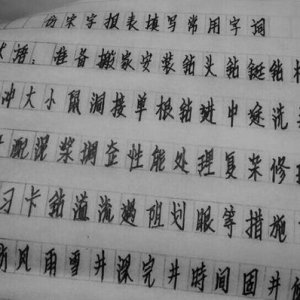 仿宋字报表填写常用字词
准备搬家安装钻头钻铤钻
冲大小鼠洞接单根钻进中途洗
配泥浆调查性能处理复杂修
习卡钻溢流遇阻划眼等措施
防风雨雪井深完井时间固井